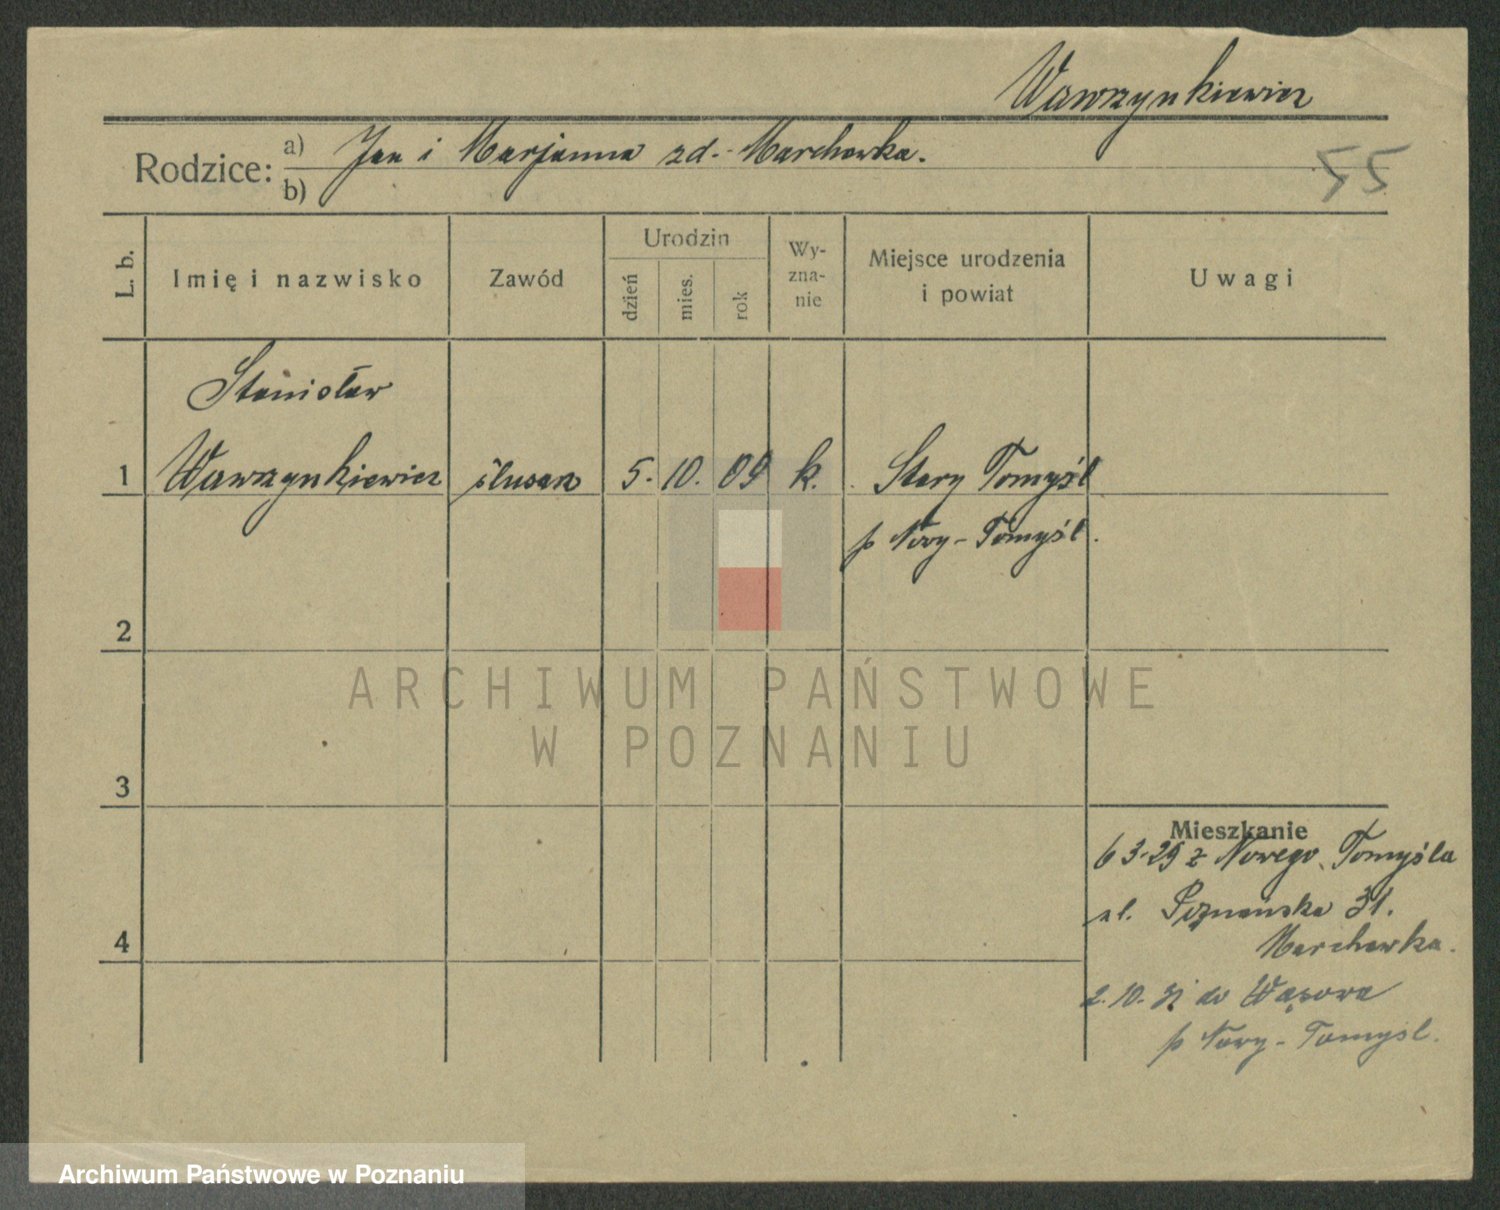 Wawrzynkiewicz
Rodzice: a) Jan i Marjanna zd. Marchewka.
b)
55
L. b. Imię i nazwisko Zawód Urodzin dzień mies. rok Wy-zna-nie Miejsce urodzenia i powiat Uwagi
Stanisław
1 Wawrzynkiewicz ślusarz 5. 10. 09 k. Stary Tomyśl
p Nowy-Tomyśl.
2
ARCHIWUM PAŃSTWOWE
W POZNANIU
3
Mieszkanie
6 3-29 z Nowego Tomyśla
ul. Poznańska 31.
Marchewka.
4
2.10.31 do Wąsowa
p Nowy-Tomyśl.
Archiwum Państwowe w Poznaniu